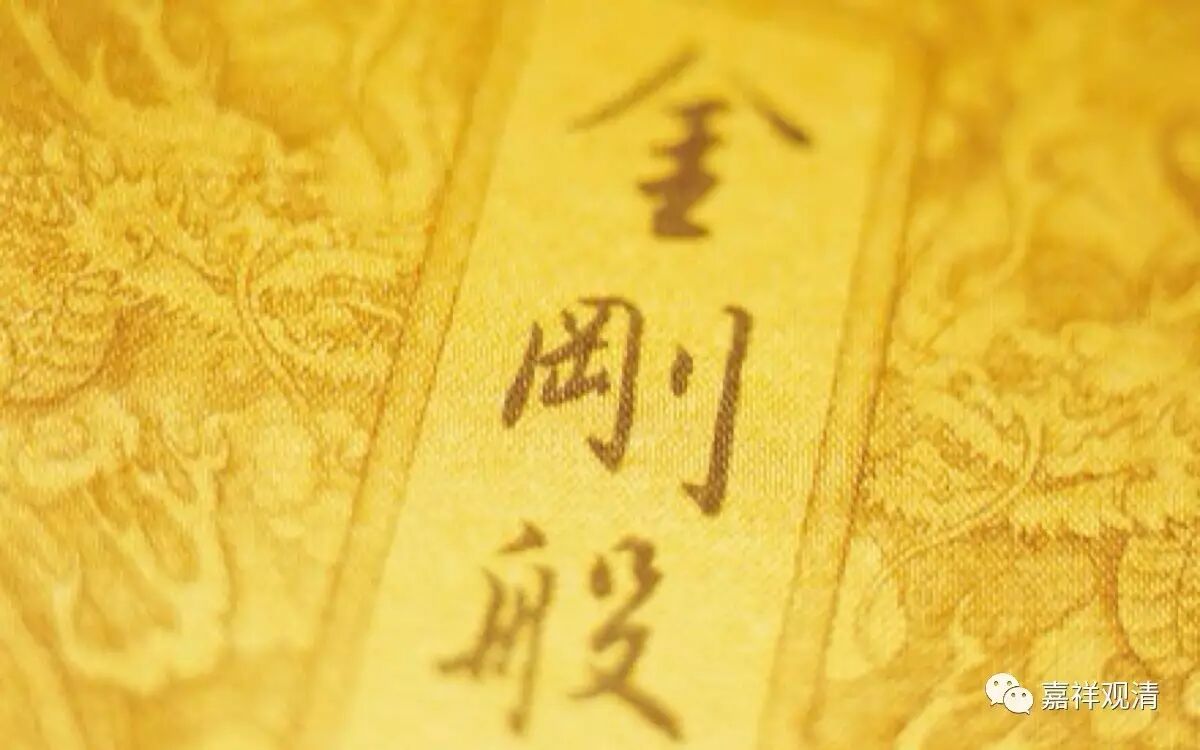 金剛般
嘉祥观清